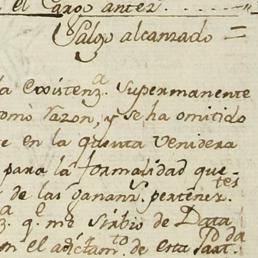 el Cargo antez
Salgo alcanzado =
la Existenz.ᵃ Supermanente
como razon, y se ha omitido
te en la quenta Venidera
para la formalidad que
de las Gananz.ˢ pertenez.ᵗᵉˢ
q.ᵉ me sirbio de Data
on el adictam.ᵗᵒ de esta Part.ᵈᵃ